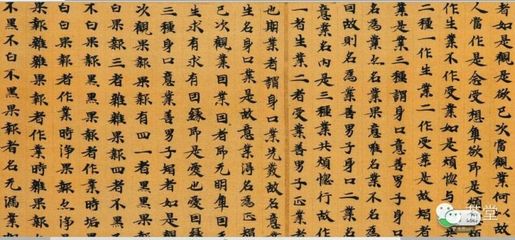 者如是觀是欲已次當觀業何以故
人當作是念受想觸欲即是煩
作生業不作受業如是煩惱與
二種一作生業二作受業是故智者
業是業三種謂身口意善男子身
名為業亦名業果意唯名業不名為
因故則名為業善男子身口二業
意業名內是三種業共煩惱行故作
一者生業二者受業善男子正業者
也期業者謂身口業先發故名意
生名身口業是故意業得名為正
已次觀業因業因者即无明觸因
生求有求有因緣即是愛也愛因緣
三種身口意業善男子智者如是觀
次觀果報果報有四一者黑黑果報
白果報三者雜雜果報四者不黑
白果報黑黑果報者作業時垢
白白果報者作業時淨果報亦淨
果報雜雜果報者作業時雜果報
不黑不白果報者名无漏業